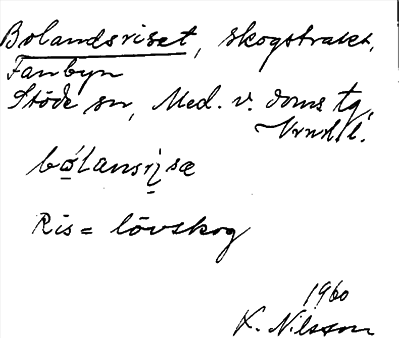 Bolandsriset, skogstrakt,
Fanbyn
Stöde sn, Med. v. doms tg,
Vrnl l.
bólansri̥sæ
Ris = lövskog
1960
K. Nilsson